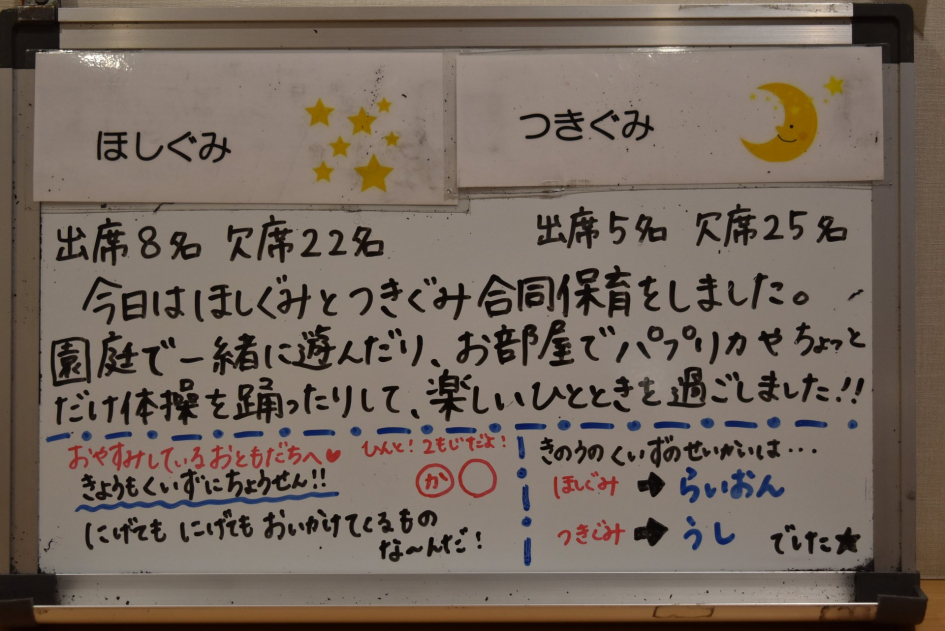 ほしぐみ
つきぐみ
出席8名 欠席22名
出席5名 欠席25名
今日はほしぐみとつきぐみ合同保育をしました。
園庭で一緒に遊んだり、お部屋でパプリカやちょっと
だけ体操を踊ったりして、楽しいひとときを過ごしました!!
おやすみしているおともだちへ♥
きょうもくいずにちょうせん!!
ひんと!2もじだよ!
か
にげても にげても おいかけてくるもの
な〜んだ!
きのうのくいずのせいかいは...
ほしぐみ ➡ らいおん
つきぐみ ➡ うし
でした★